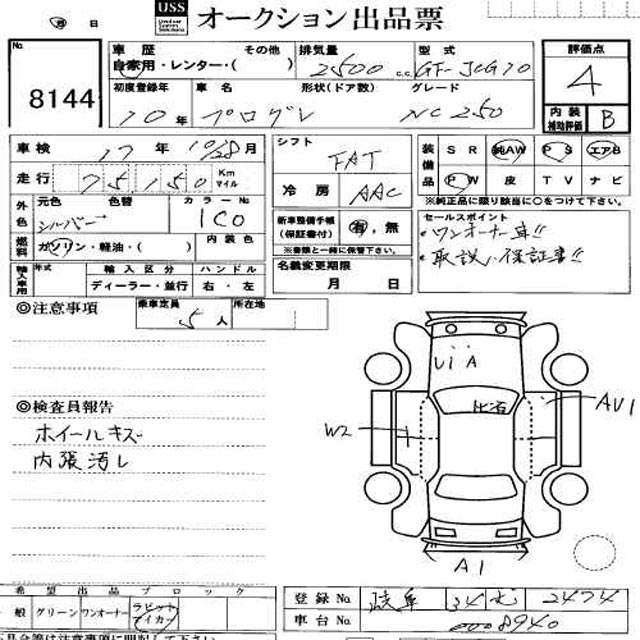 USS オークション出品票
月 日
No. 8144
車歴 その他
自家用・レンター・( )
排気量 2500 c.c.
型式 GF-JCG10
評価点 4
初度登録年 10年
車名 プログレ
形状(ドア数) グレード NC250
内装補助評価 B
車検 17年 10/28月
走行 75,150 Km マイル
外色 元色 シルバー 色替 カラーNo. 1C0
燃料 ガソリン・軽油・( ) 内装色
輸入車用 年式 輸入区分 ディーラー・並行 ハンドル 右・左
シフト FAT
冷房 AAC
新車整備手帳(保証書付) 有, 無
※書類と一緒に保管下さい。
名義変更期限 月 日
装備品 SR 純AW PS エアB
PW 皮 TV ナビ
※純正品に限り該当に○をつけて下さい。
セールスポイント
・ワンオーナー車!!
・取説い保証書!!
◎注意事項
乗車定員 5人 所在地
◎検査員報告
ホイールキズ
内張汚し
U1 A
W2
AU1
A1
希望出品ブロック
一般 グリーン ワンオーナー
登録No. 岐阜 34 2474
車台No. 0008940